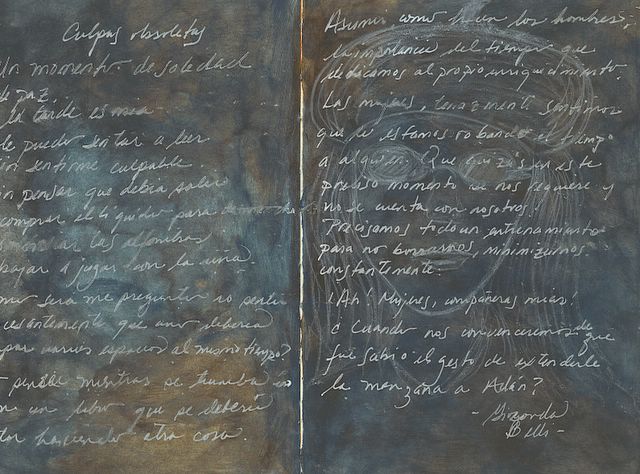 Culpas obsoletas
Un momento de soledad
de paz.
la tarde es mía
Me puedo sentar a leer
sin sentirme culpable.
sin pensar que debía salir
comprar el líquido para
manchar las alfombras
bajar a jugar con la niña.
será me pregunto no sentir
incesantemente que uno debería
ocupar varios espacios al mismo tiempo?
No pensar mientras se tumba
un libro que se debería
estar haciendo otra cosa.
Asumir como hacen los hombres,
la importancia del tiempo que
dedicamos al propio enriquecimiento.
Las mujeres, tenazmente sentimos
que le estamos robando el tiempo
a alguien. Que quizás en este
preciso momento se nos requiere y
no se cuenta con nosotros.
Precisamos todo un entrenamiento
para no borrarnos, minimizarnos
constantemente.
¡Ah! Mujeres, compañeras mías!
¿Cuando nos convenceremos de que
fué sabio el gesto de extenderle
la manzana a Adán?
- Gioconda
Belli -